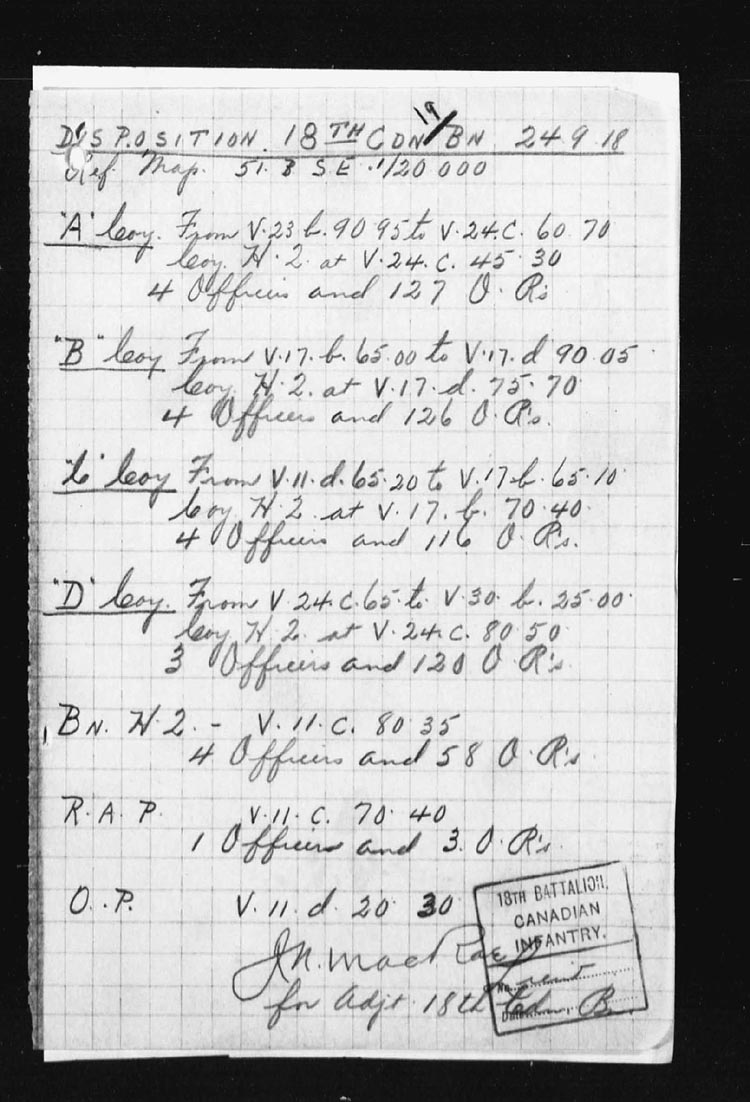 19
DISPOSITION. 18TH CDN/BN 24.9.18
Ref. Map. 51.B S E. 1/20 000
"A" Coy. From V.23.b.90 95 to V.24.C. 60.70
Coy. H.Q. at V.24.C. 45.30
4 Officers and 127 O.R's
"B" Coy From V.17.b.65.00 to V.17.d 90.05
Coy. H.Q. at V.17.d.75.70
4 Officers and 126 O.R's.
"C" Coy From V.11.d.65.20 to V.17.b.65.10
Coy H.Q. at V.17.b. 70.40.
4 Officers and 116 O.R's.
"D" Coy. From V.24.C.65.to V.30.b.25.00.
Coy H.Q. at V.24.C. 80.50
3 Officers and 120 O R's.
BN. H.Q. - V.11.C. 80.35
4 Officers and 58 O.R's.
R.A.P. V.11.C. 70.40
1 Officers and 3.O.R's.
O.P. V.11.d 20 30
18TH BATTALION,
CANADIAN
INFANTRY.
J.N. MacRae
No.
for Adjt. 18th